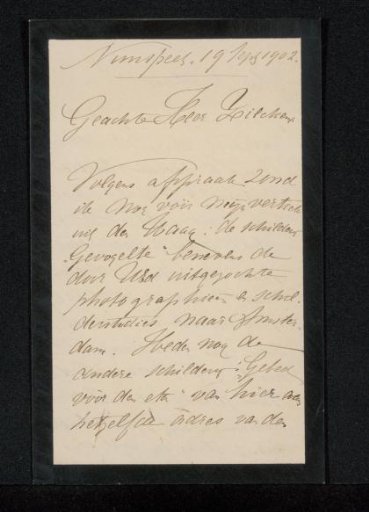 Nunspeet. 19 Sept 1902.
Geachte Heer Zilcken
Volgens afspraak zond
ik nog vóór mijn vertrek
uit den Haag: de schilderij
"Gevogelte" benevens de
door U uitgezochte
photographieën & schil-
derstudies naar Amster
dam. Heden nog de
andere schilderij: "Gebed
voor den eten" van hier aan
hetzelfde adres van den